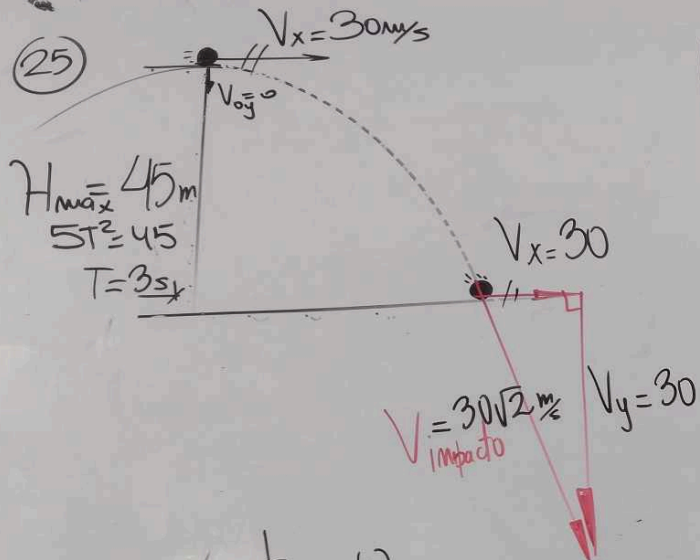 25
Vx=30m/s
Voy=0
Hmáx=45m
5T²=45
T=3s
Vx=30
V impacto =30√2 m/s
Vy=30